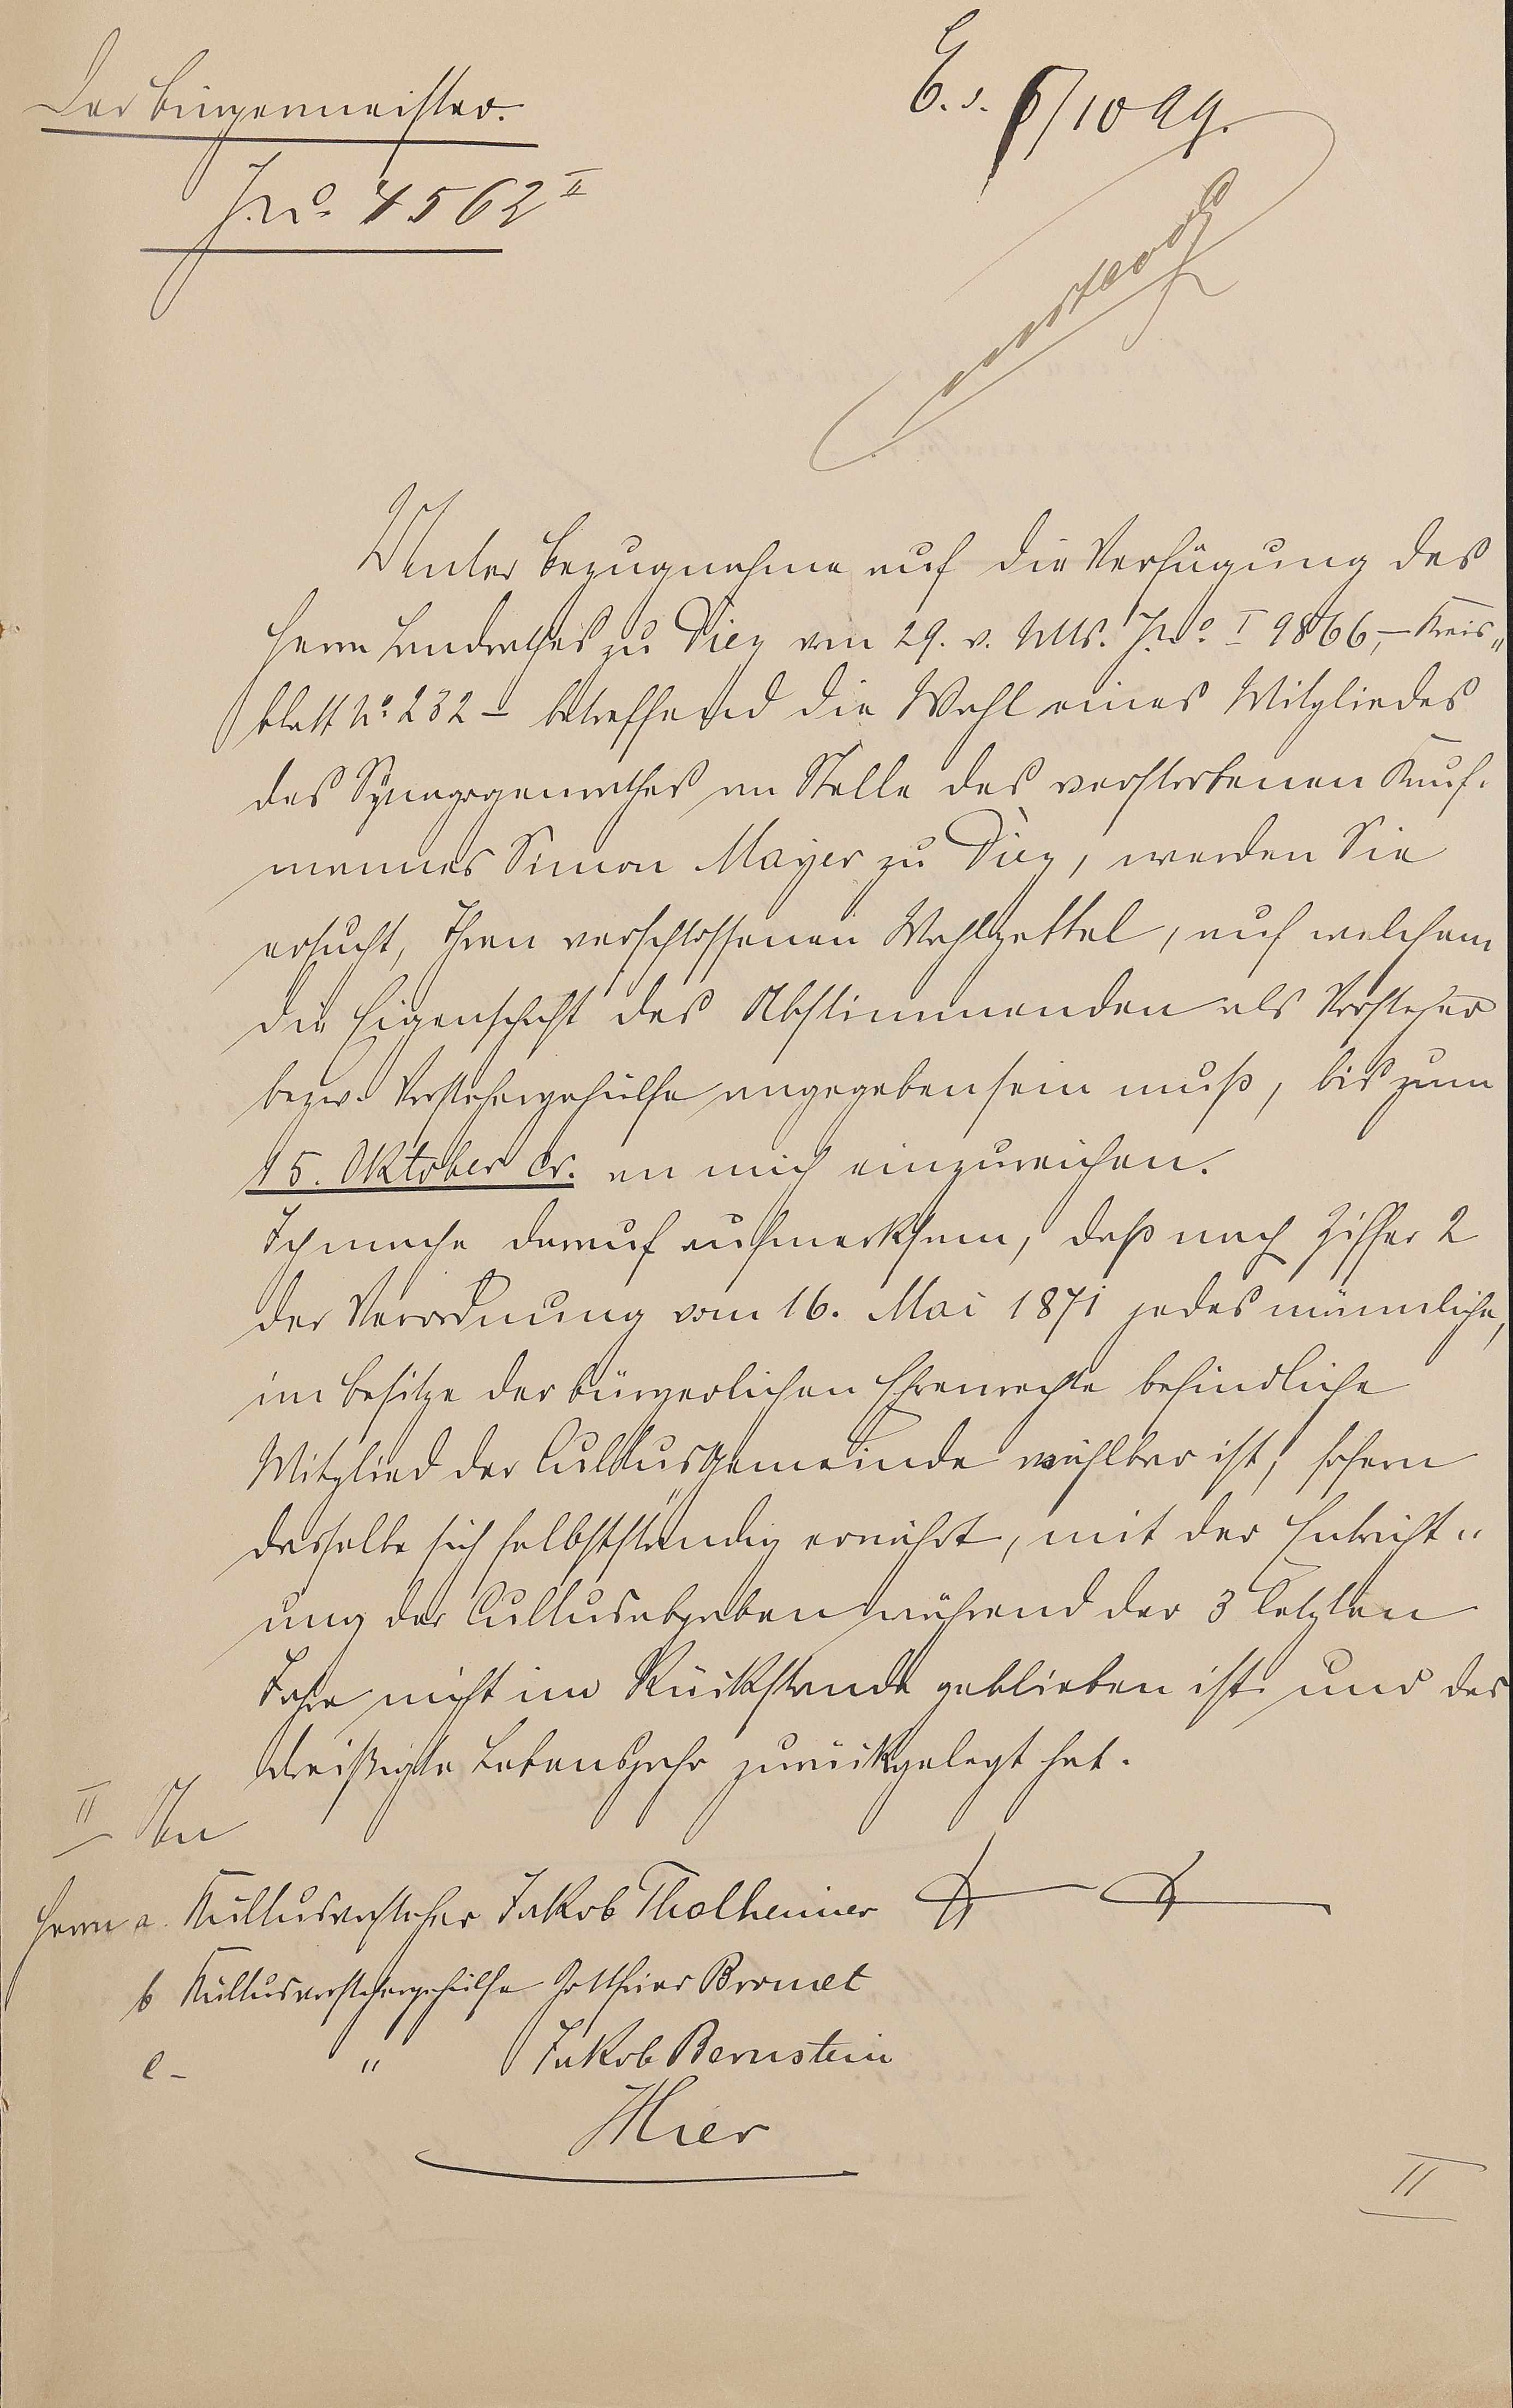 Der Bürgermeister.
J. No. 4562 II
E. s. 6/10 99.
Unter Bezugnahme auf die Verfügung des
Herrn Landrathes zu Diez vom 29. v. Mts. J. No. I 9866, – Kreis„
blatt No. 232 – betreffend die Wahl eines Mitgliedes
des Synagogenrathes an Stelle des verstorbenen Kauf-
mannes Simon Mayer zu Diez, werden Sie
ersucht, Ihren verschlossenen Wahlzettel, auf welchem
die Eigenschaft des Abstimmenden als Vorsteher
bezw. Vorstehergehülfe angegeben sein muß, bis zum
15. Oktober cr. an mich einzureichen.
Ich mache darauf aufmerksam, daß nach Ziffer 2
der Verordnung vom 16. Mai 1871 jedes männliche,
im Besitze der bürgerlichen Ehrenrechte befindliche
Mitglied der Cultusgemeinde wählbar ist, sofern
dasselbe sich selbstständig ernährt, mit der Entricht„
ung der Cultusabgaben während der 3 letzten
Jahre nicht im Rückstande geblieben ist und das
dreißigste Lebensjahr zurückgelegt hat.
II An
Herrn a. Kultusvorsteher Jakob Thalheimer
b Kultusvorstehergehülfe Gotthier Bromet
c – " Jakob Bernstein
Hier
II